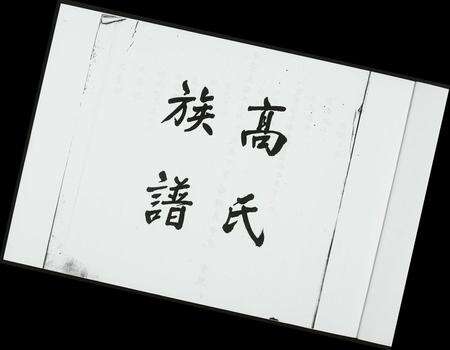 高氏
族譜